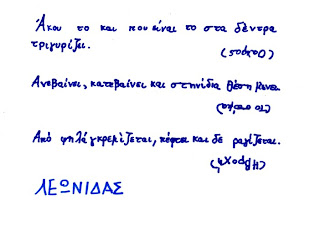 Άκου το και που είναι το στα δέντρα
τριγυρίζει.
Ανεβαίνει, κατεβαίνει και στην ίδια θέση μενει.
Από ψηλά γκρεμίζεται, πέφτει και δε ραγίζεται.
(Η βροχή)
ΛΕΩΝΙΔΑΣ